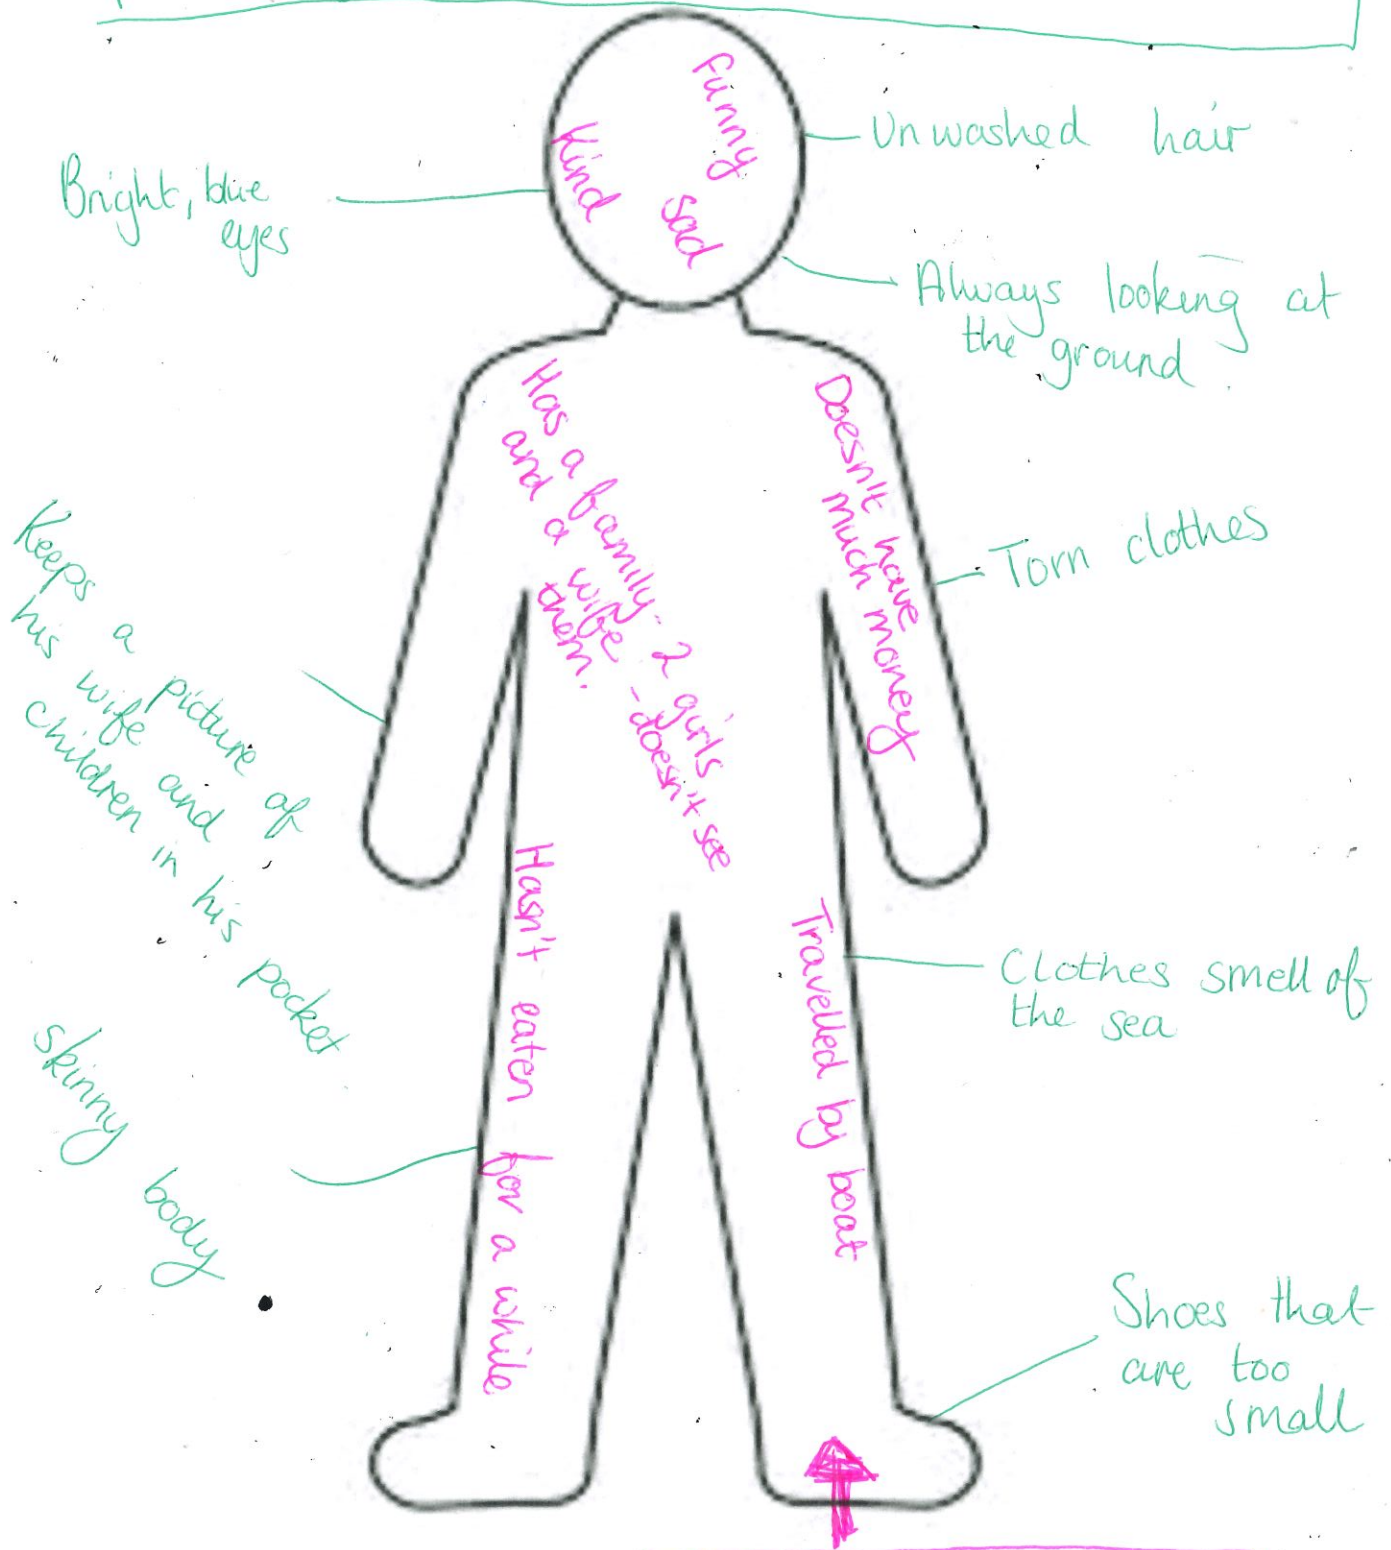 Funny
Kind
sad
Unwashed hair
Bright, blue
eyes
Always looking at
the ground.
Has a family - 2 girls
and a wife - doesn't see
them.
Doesn't have
much money
Torn clothes
Keeps a picture of
his wife and
children in his pocket
Hasn't eaten for a while
Travelled by boat
Clothes smell of
the sea
skinny body
Shoes that
are too
small